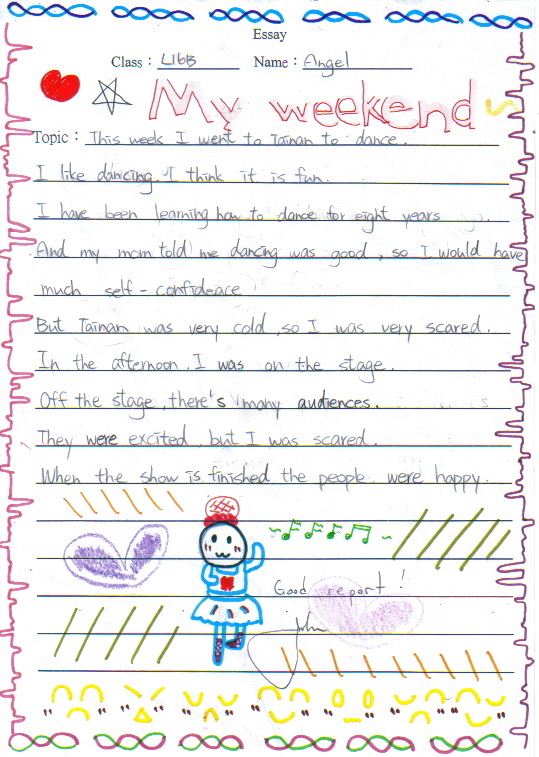 Essay
Class : L16B Name : Angel
My weekend
Topic : This week I went to Tainan to dance.
I like dancing. I think it is fun.
I have been learning how to dance for eight years.
And my mom told me dancing was good, so I would have
much self-confideace
But Tainan was very cold, so I was very scared.
In the afternoon, I was on the stage.
Off the stage, there's many audiences.
They were excited, but I was scared.
When the show is finished the people were happy.
Good report!